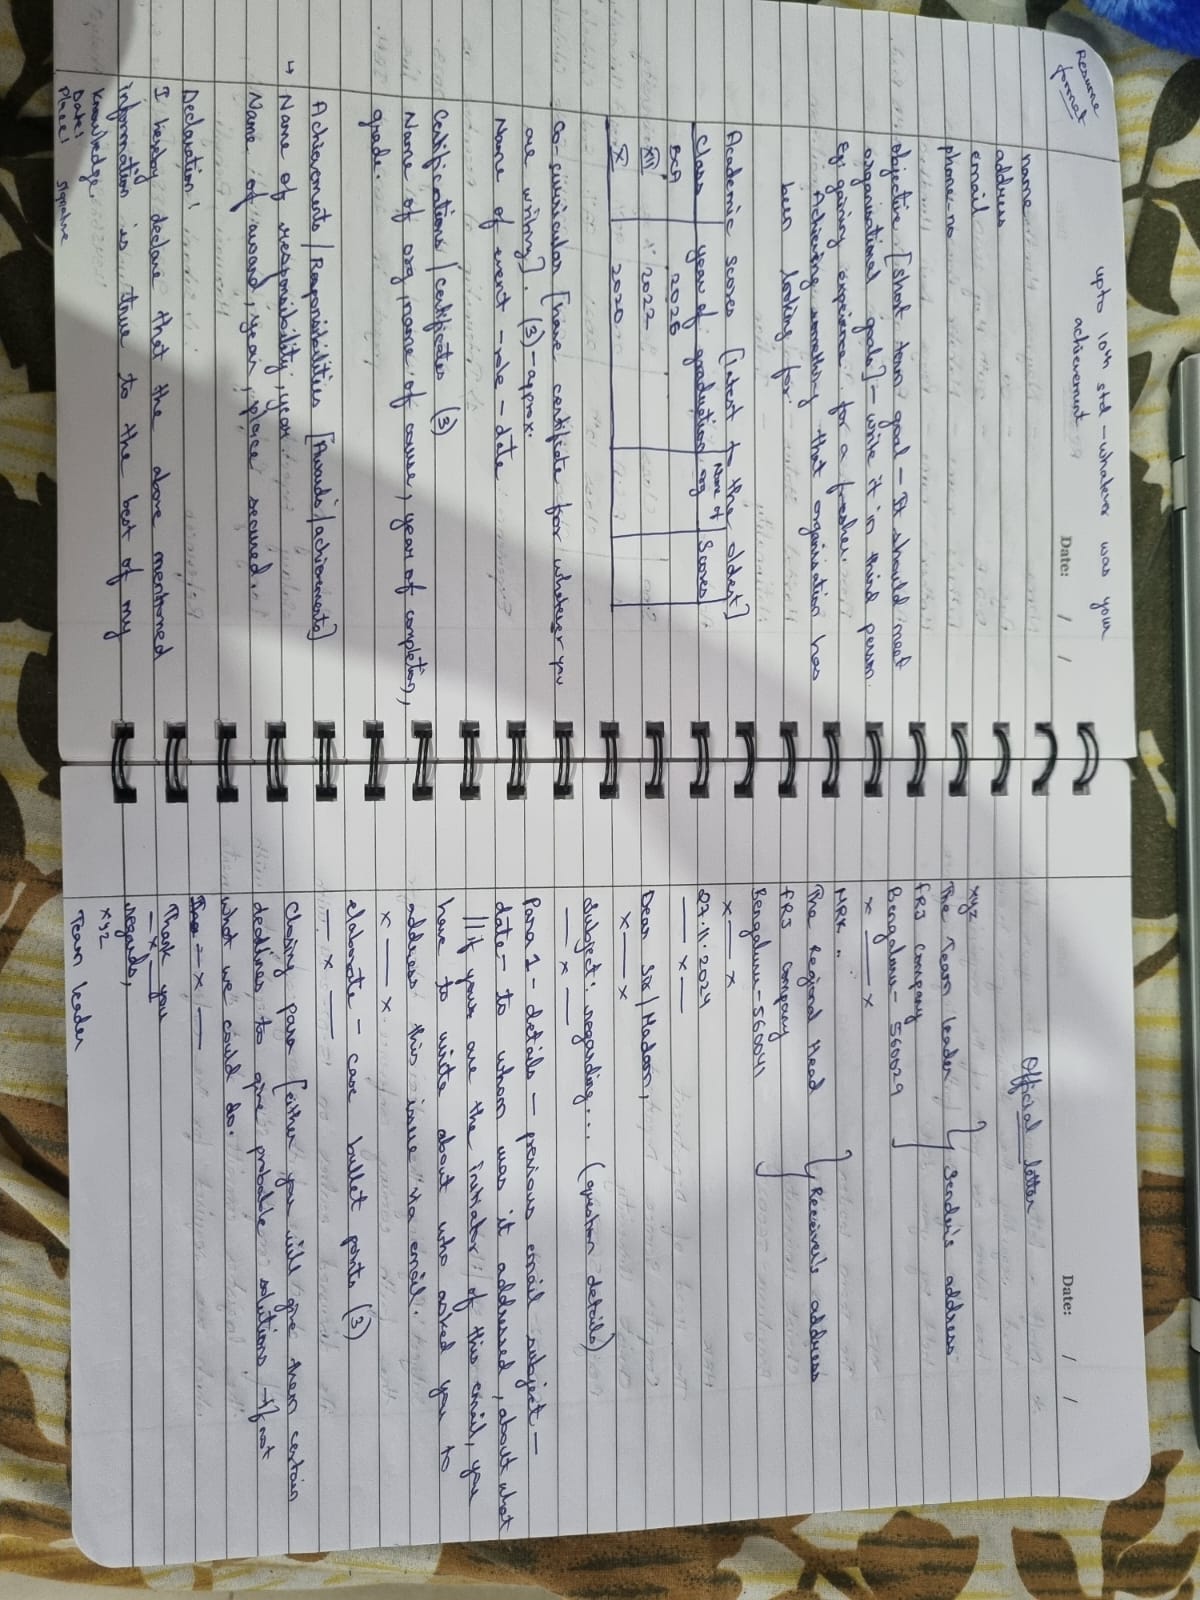 Resume
format
upto 10th std - whatever was your
achievement
Date: / /
name
address
email
phone-no
objective [short term goal - It should meet
organisational goals] - write it in third person.
Eg: gaining experience for a fresher.
Achieving something that organisation has
been looking for.
Academic scores [latest to the oldest]
Class | year of graduation | Name of org | Scores
BCA 2026
XII 2022
X 2020
Co-curricular [have certificate for whatever you
are writing]. (3) - approx.
Name of event - role - date
Certifications / certificates (3)
Name of org, name of course, year of completion,
grade.
Achievements / Responsibilities [Awards / achievements]
↳ Name of responsibility, year
Name of award, year, place secured.
Declaration:
I hereby declare that the above mentioned
information is true to the best of my
knowledge.
Date:
Place: signature
Date: / /
Official letter
xyz
The Team leader
FRJ Company
Bengaluru - 560029
Sender's address
x — x
MRK
The Regional Head
FRJ Company
Bengaluru - 560041
Receiver's address
x — x
27.11.2024
— x —
Dear Sir / Madam,
x — x
Subject: regarding... (question details)
— x —
Para 1 - details - previous email subject -
date - to whom was it addressed, about what
// if your are the initiator of this email, you
have to write about who asked you to
address this issue via email.
x — x
elaborate - case bullet points (3)
— x —
Closing para [either you will give them certain
deadlines, to give probable solutions if not
what we could do.
— x —
Thank you
— x —
regards,
xyz
Team leader